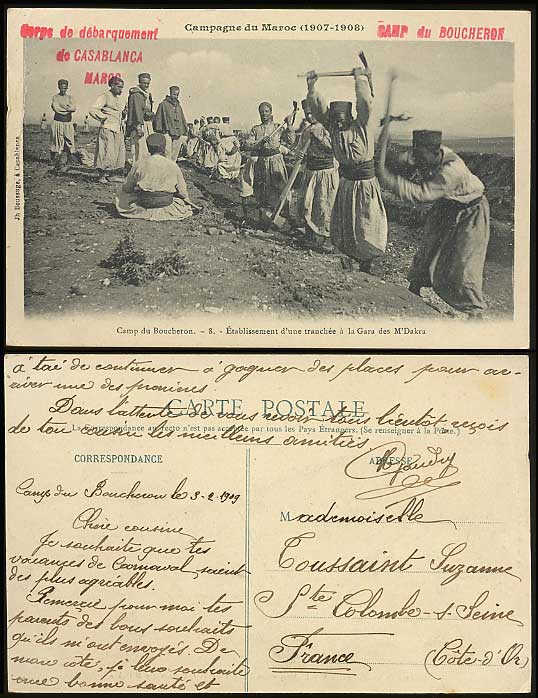 Campagne du Maroc (1907-1908)
Corps de débarquement
de CASABLANCA
MAROC
CAMP du BOUCHERON
Camp du Boucheron. - 8. - Établissement d'une tranchée à la Gara des M'Dakra
à toi de continuer à gagner des places pour ar-
river une des premières.
Dans l'attente de vous revoir tous bientôt, reçois
de ton cousin les meilleures amitiés
CARTE POSTALE
La Correspondance au recto n'est pas acceptée par tous les Pays Étrangers. (Se renseigner à la Poste.)
CORRESPONDANCE
Camp du Boucheron le 3-2-1909
Chère cousine
Je souhaite que tes
vacances de Carnaval soient
des plus agréables.
Remercie pour moi tes
parents des bons souhaits
qu'ils m'ont envoyés. De
mon côté, je leur souhaite
une bonne santé et
ADRESSE
Mademoiselle
Toussaint Suzanne
Ste Colombe-s-Seine
France (Côte-d'Or)